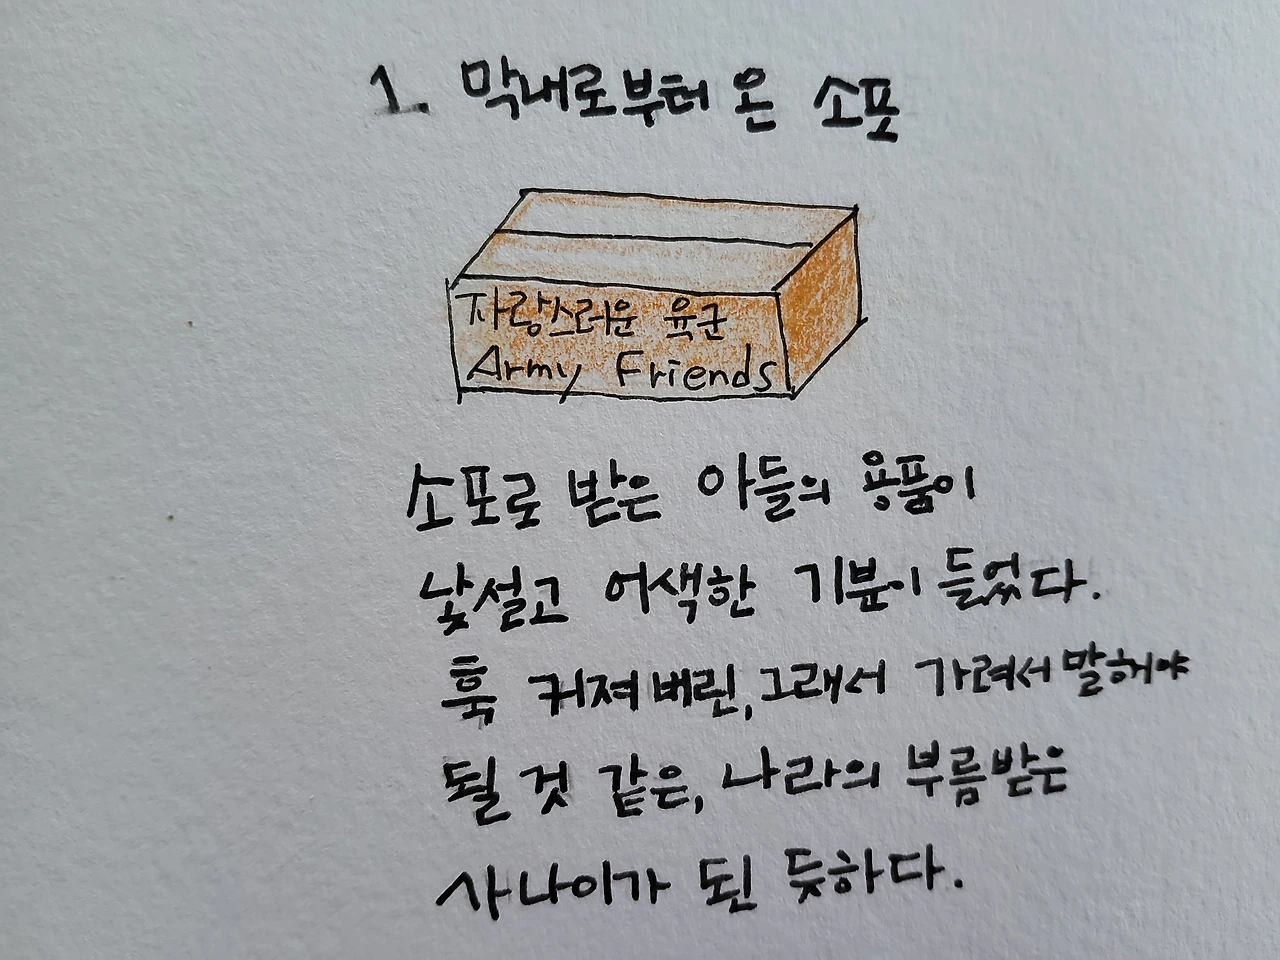 1. 막내로부터 온 소포
자랑스러운 육군
Army Friends
소포로 받은 아들의 용품이
낯설고 어색한 기분이 들었다.
훅 커져버린, 그래서 가려서 말해야
될 것 같은, 나라의 부름받은
사나이가 된 듯하다.